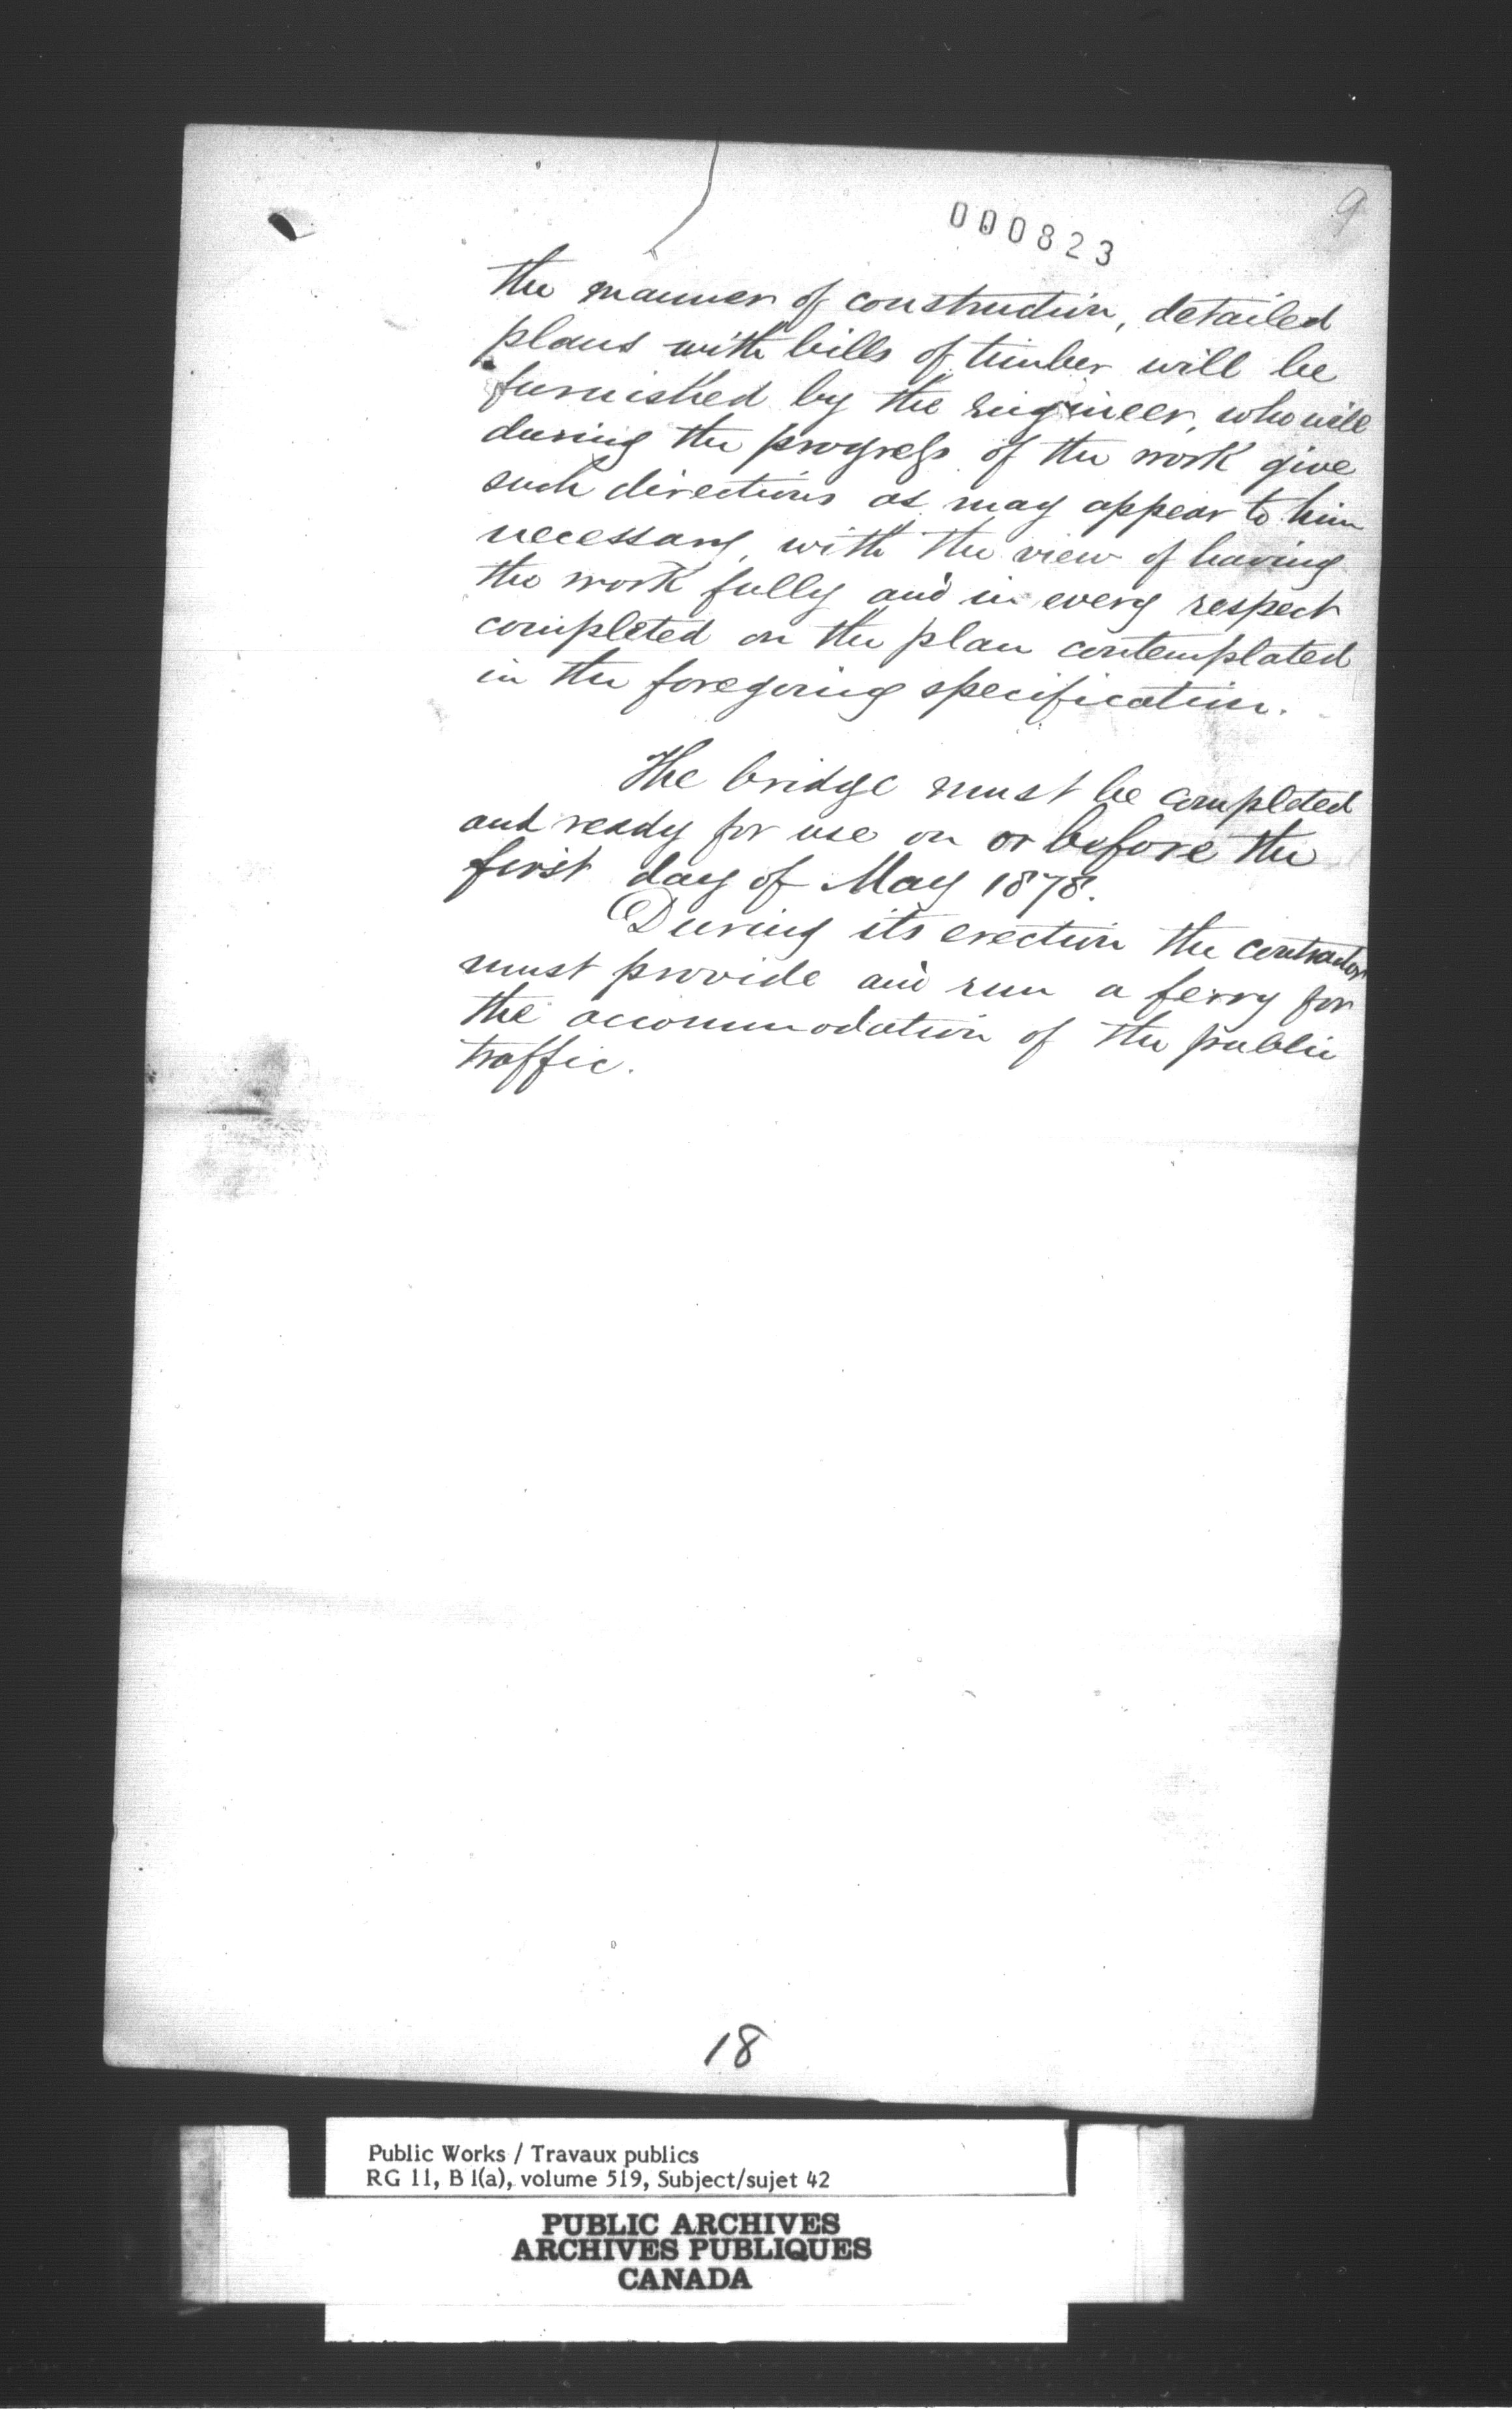 000823
9
the manner of construction, detailed
plans with bills of timber will be
furnished by the engineer, who will
during the progress of the work give
such directions as may appear to him
necessary, with the view of having
the work fully and in every respect
completed on the plan contemplated
in the foregoing specification.
The bridge must be completed
and ready for use on or before the
first day of May 1878.
During its erection the contractor
must provide and run a ferry for
the accommodation of the public
traffic.
18
Public Works / Travaux publics
RG 11, B 1(a), volume 519, Subject/sujet 42
PUBLIC ARCHIVES
ARCHIVES PUBLIQUES
CANADA